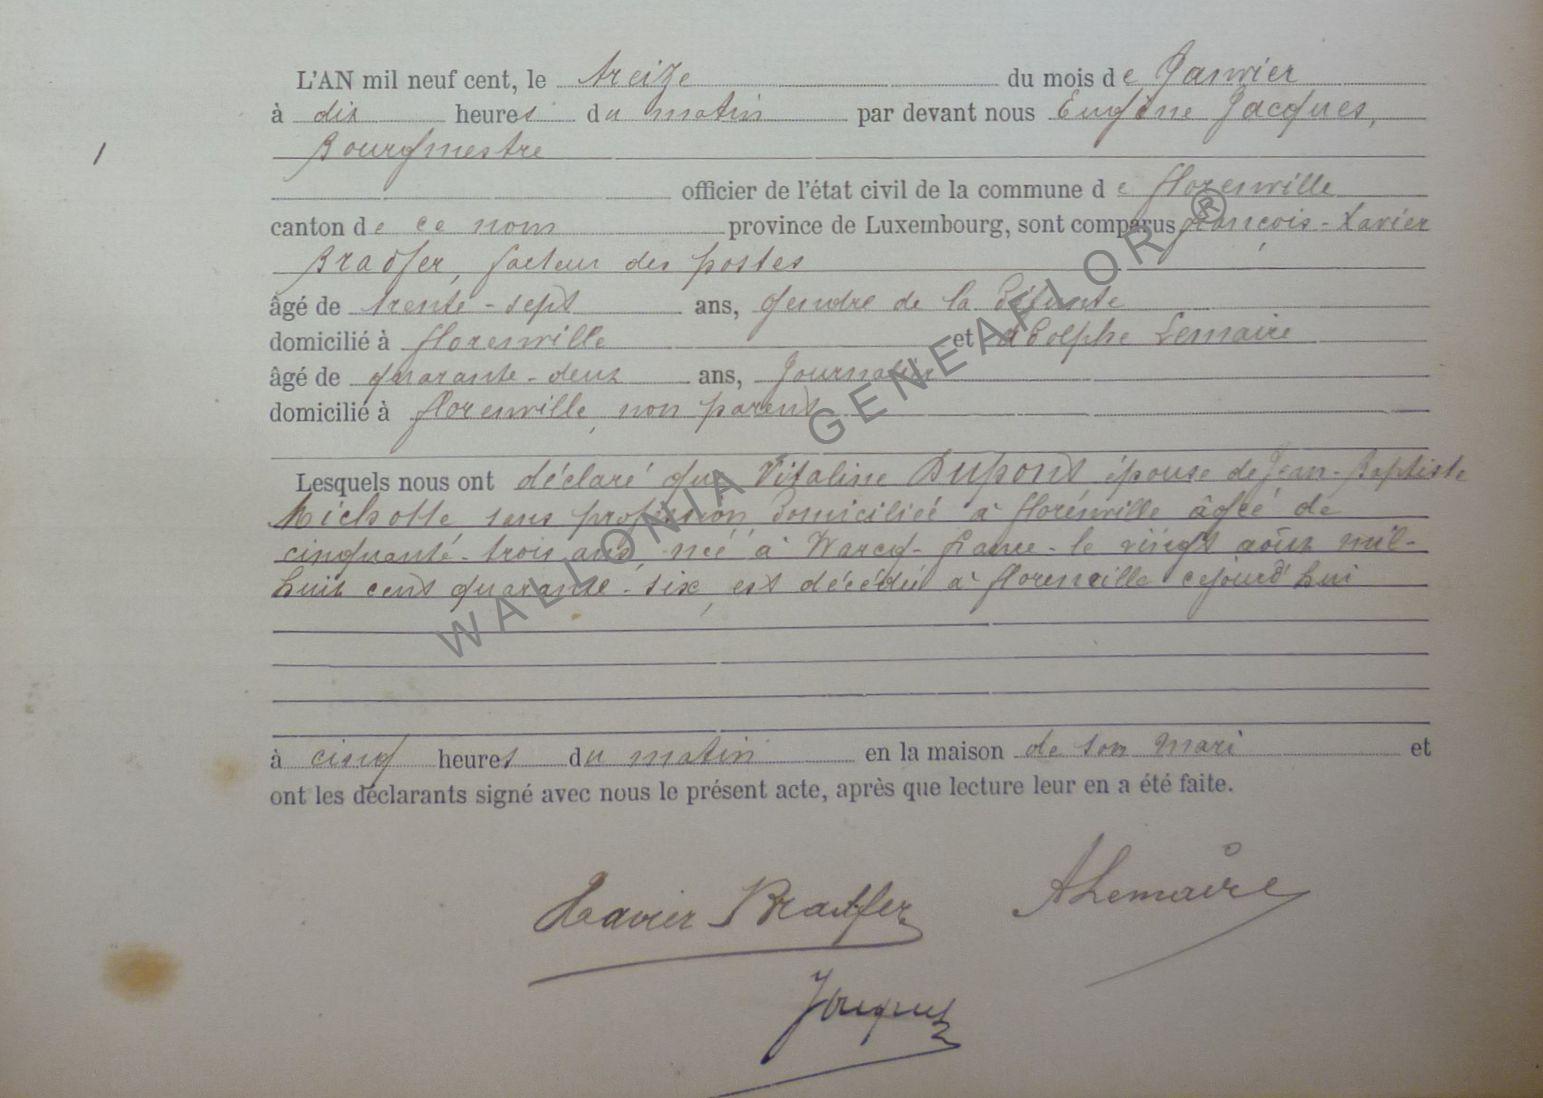 L'AN mil neuf cent, le treize du mois de Janvier
à dix heures du matin par devant nous Eugène Jacques,
1
Bourgmestre
officier de l'état civil de la commune de florenville
canton de ce nom province de Luxembourg, sont comparus françois-Xavier
Bradfer, facteur des postes
âgé de trente-sept ans, gendre de la défunte
domicilié à florenville et Adolphe Lemaire
âgé de quarante-deux ans, Journalier
domicilié à florenville, non parent
Lesquels nous ont déclaré que Vitaline Dupont épouse de Jean-Baptiste
Michotte sans profession, domiciliée à florenville âgée de
cinquante-trois ans, née à Warcq-france-le vingt août mil-
huit cent quarante-six, est décédée à florenville cejourd'hui
à cinq heures du matin en la maison de son mari et
ont les déclarants signé avec nous le présent acte, après que lecture leur en a été faite.
Xavier Bradfer ALemaire
Jacques
WALLONIA GENEAFLOR ®